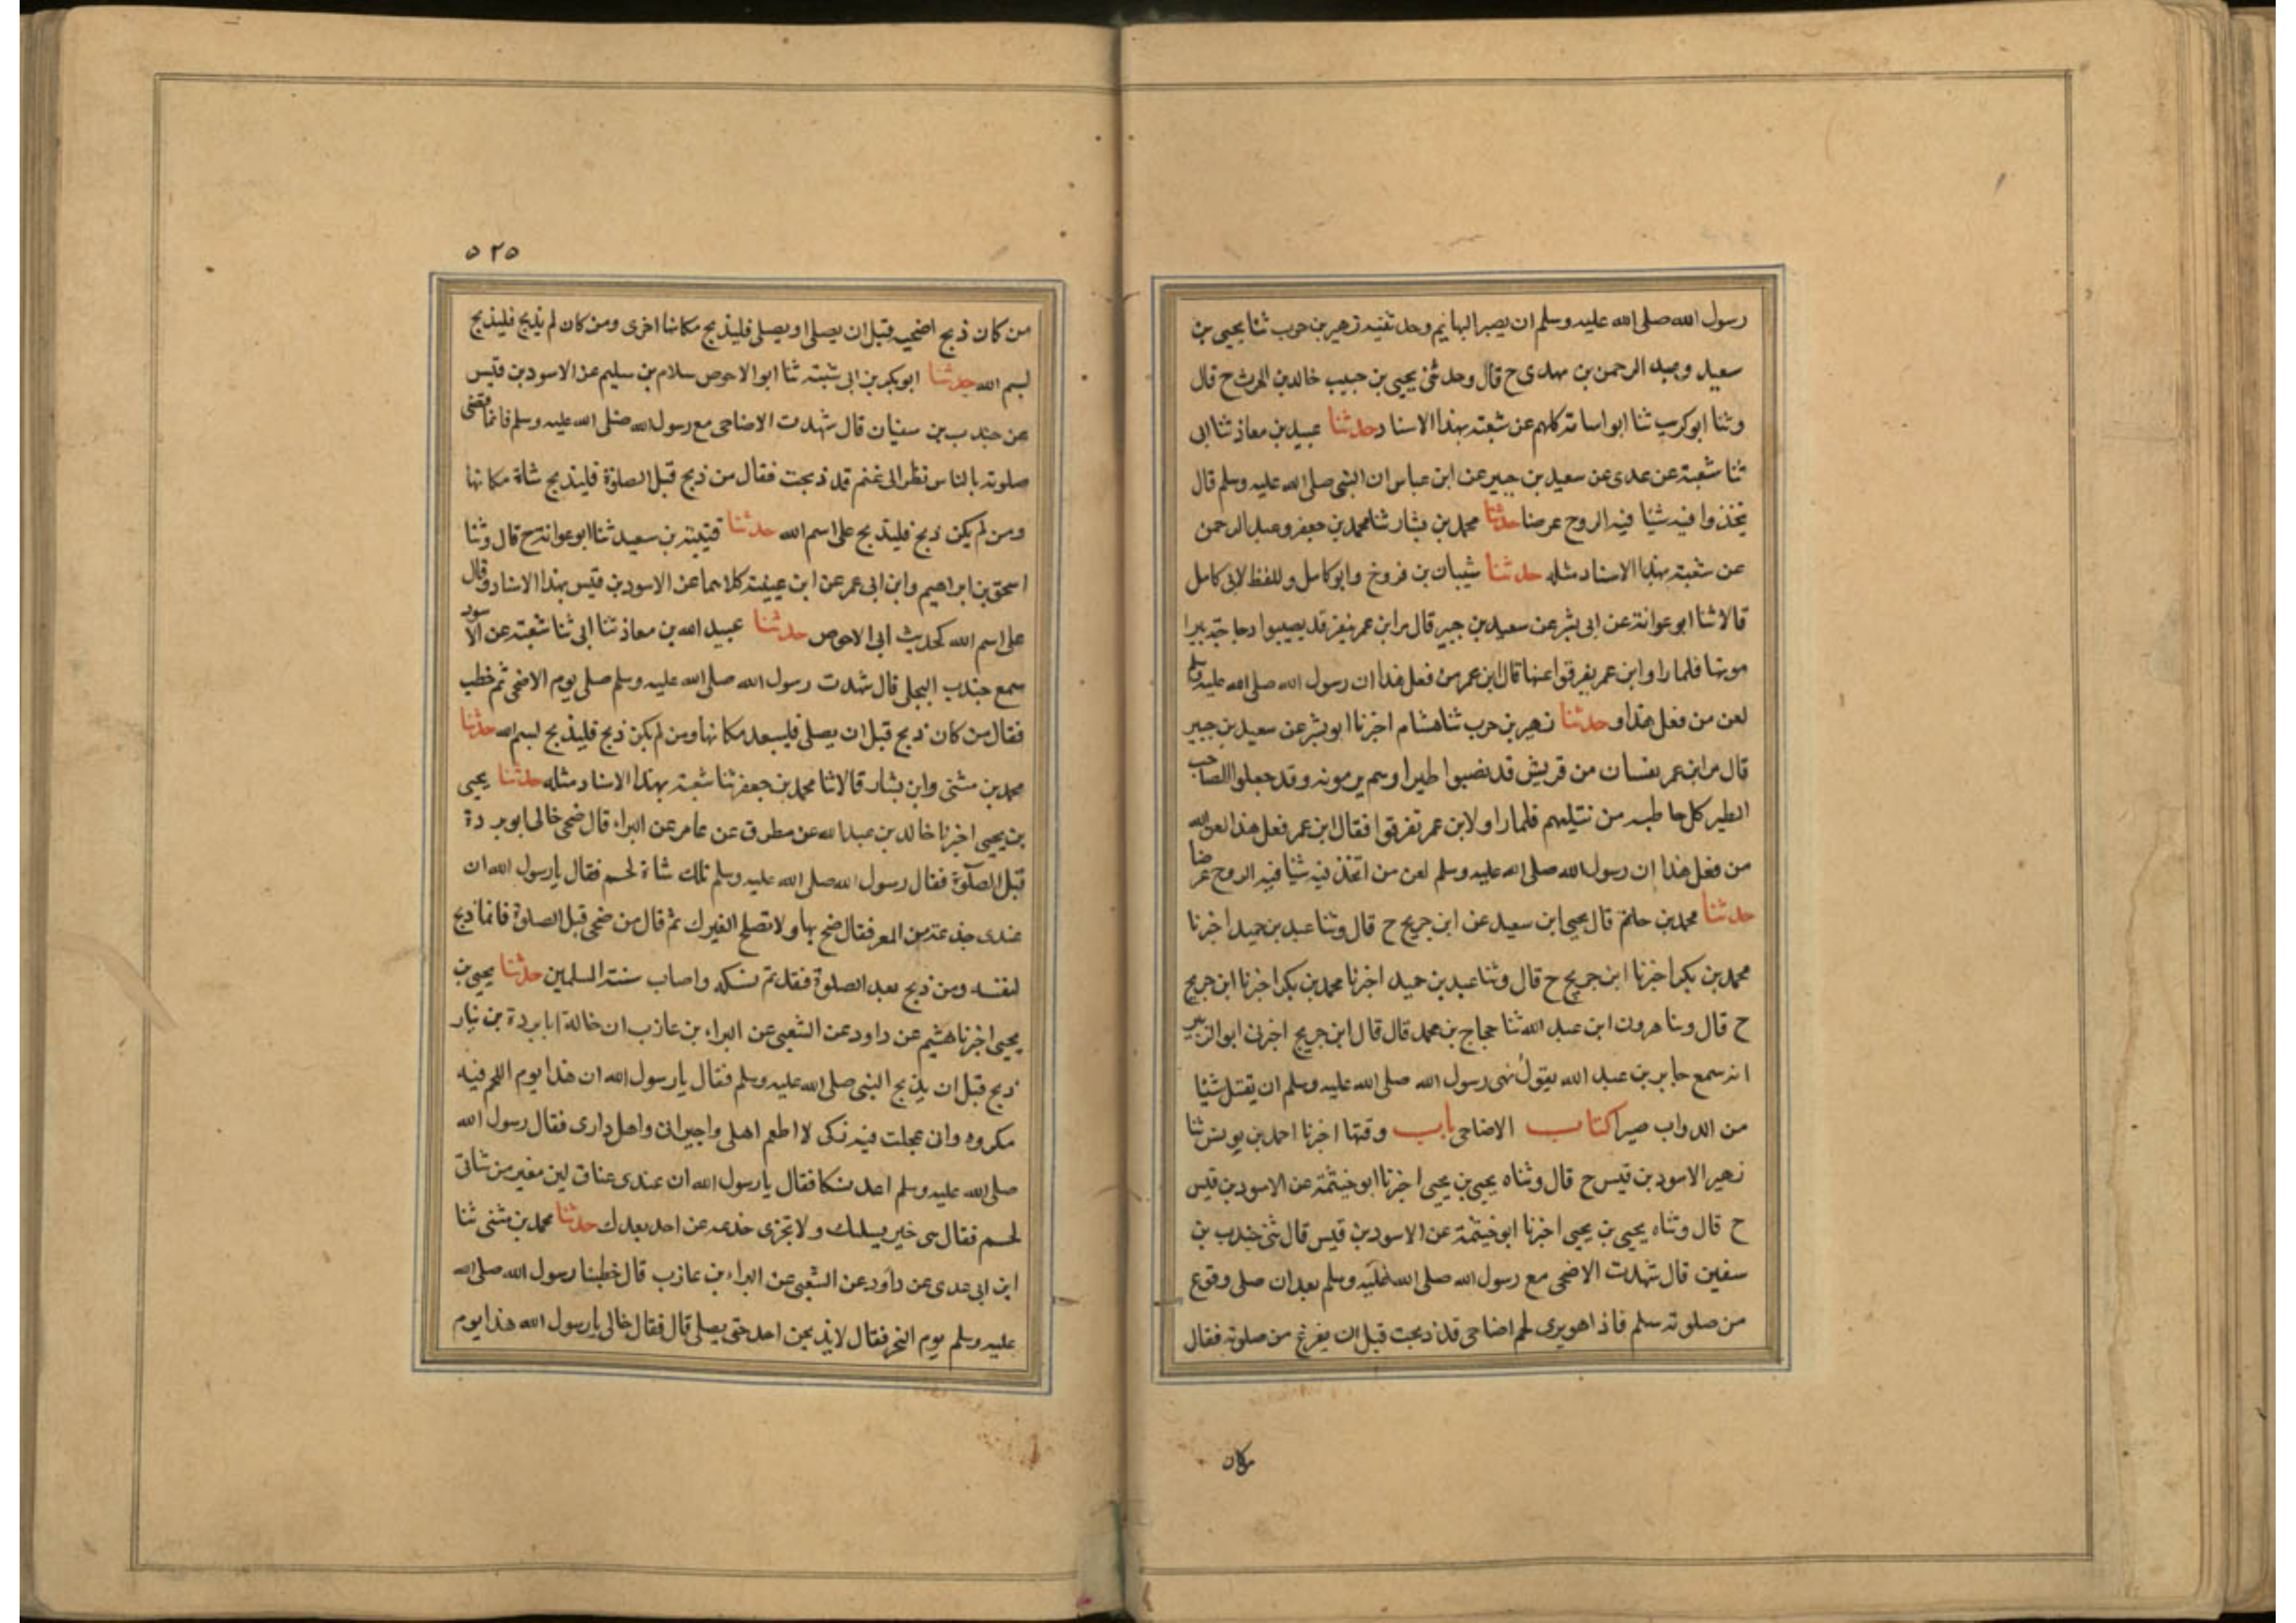 رسول الله صلى الله عليه وسلم ان يصبر البهايم وحدثنيه زهير بن حرب ثنا يحيى بن
سعيد وعبد الرحمن بن مهدى ح قال وحدثنى يحيى بن حبيب خالد بن الحرث ح قال
وثنا ابو كريب ثنا ابو اسامة كلهم عن شعبة بهذا الاسناد حدثنا عبيد بن معاذ ثنا ابى
ثنا شعبة عن عدى عن سعيد بن جبير عن ابن عباس ان النبى صلى الله عليه وسلم قال
تخذوا فيه شيا فيه الروح عرضا حدثنا محمد بن بشار ثنا محمد بن جعفر وعبد الرحمن
عن شعبة بهذا الاسناد مثله حدثنا شيبان بن فروخ وابو كامل وللفظ لابى كامل
قالا ثنا ابو عوانة عن ابى بشر عن سعيد بن جبير قال مر ابن عمر بنفر قد يصيبوا دجاجة يبرا
مونها فلما راوا ابن عمر يفرقوا عنها قال ابن عمر من فعل هذا ان رسول الله صلى الله عليه وسلم
لعن من فعل هذا وحدثنا زهير بن حرب ثنا هشام اخبرنا ابو بشر عن سعيد بن جبير
قال مر ابن عمر بفسان من قريش قد نصبوا طيرا وسم يرمونه وقد جعلوا الصاحب
الطير كل حاطبه من نتيلهم فلما راو لابن عمر تفرقوا فقال ابن عمر فعل هذا لعن الله
من فعل هذا ان رسول الله صلى الله عليه وسلم لعن من اتخذ فيه شيا فيه الروح عرضا
حدثنا محمد بن حاتم قال يحيى ابن سعيد عن ابن جريج ح قال وثنا عبد بن حميد اخبرنا
محمد بن بكر اخبرنا ابن جريج ح قال وثنا عبد بن حميد اخبرنا محمد بن بكر اخبرنا ابن جريج
ح قال وثنا هرون ابن عبد الله ثنا حجاج بن محمد قال قال ابن جريج اخبرنى ابو الزبير
انه سمع جابر بن عبد الله يقول نهى رسول الله صلى الله عليه وسلم ان يقتل شيا
من الدواب صبرا كتاب الاضاحى باب وقتها اخبرنا احمد بن يونس ثنا
زهير الاسود بن قيس ح قال وثناه يحيى بن يحيى اخبرنا ابو خيثمة عن الاسود بن قيس
ح قال وثناه يحيى بن يحيى اخبرنا ابو خيثمة عن الاسود بن قيس قال ثنى جندب بن
سفين قال شهدت الاضحى مع رسول الله صلى الله عليه وسلم بعد ان صلى وفرع
من صلوته سلم فاذا هو يرى لحم اضاحى قد ذبحت قبل ان يفرغ من صلوته فقال
من كان
٥٢٥
من كان ذبح اضحيه قبل ان يصلى او يصلى فليذبح مكانها اخرى ومن كان لم يذبح فليذبح
بسم الله حدثنا ابو بكر بن ابى شيبة ثنا ابو الاحوص سلام بن سليم عن الاسود بن قيس
عن جندب بن سفيان قال شهدت الاضاحى مع رسول الله صلى الله عليه وسلم فلما قضى
صلوته بالناس نظر الى غنم قد ذبحت فقال من ذبح قبل الصلوة فليذبح شاة مكانها
ومن لم يكن ذبح فليذبح على اسم الله حدثنا قتيبة بن سعيد ثنا ابو عوانة ح قال وثنا
اسحق بن ابراهيم وابن ابى عمر عن ابن عيينة كلاهما عن الاسود بن قيس بهذا الاسناد وقال
على اسم الله كحديث ابى الاحوص حدثنا عبيد الله بن معاذ ثنا ابى ثنا شعبة عن الاسود
سمع جندب البجلى قال شهدت رسول الله صلى الله عليه وسلم صلى يوم الاضحى ثم خطب
فقال من كان ذبح قبل ان يصلى فليسعد مكانها ومن لم يكن ذبح فليذبح بسم الله حدثنا
محمد بن مثنى وابن بشار قالا ثنا محمد بن جعفر ثنا شعبة بهذا الاسناد مثله حدثنا يحيى
بن يحيى اخبرنا خالد بن عبد الله عن مطرق عن عامر عن البراء قال ضحى خالى ابو بردة
قبل الصلوة فقال رسول الله صلى الله عليه وسلم تلك شاة لحم فقال يا رسول الله ان
عندى جذعة من المعز فقال ضح بها ولا تصلح الغيرك ثم قال من ضحى قبل الصلوة فانما ذبح
لنفسه ومن ذبح بعد الصلوة فقد تم نسكه واصاب سنة المسلمين حدثنا يحيى بن
يحيى اخبرنا هشيم عن داود عن الشعبى عن البراء بن عازب ان خالة ابا بردة بن نيار
ذبح قبل ان يذبح النبى صلى الله عليه وسلم فقال يا رسول الله ان هذا يوم اللحم فيه
مكروه وانى عجلت فيه نسكى لا اطعم اهلى واجيرانى واهل دارى فقال رسول الله
صلى الله عليه وسلم اعد نسكا فقال يا رسول الله ان عندى عناق لبن مغير من شاتى
لحم فقال هى خير يسلك ولا تجزى جذعه عن احد بعدك حدثنا محمد بن مثنى ثنا
ابن ابى عدى عن داود عن الشعبى عن البراء بن عازب قال خطبنا رسول الله صلى الله
عليه وسلم يوم النحر فقال لا يذبحن احد حتى يصلى قال فقال خالى يا رسول الله هذا يوم